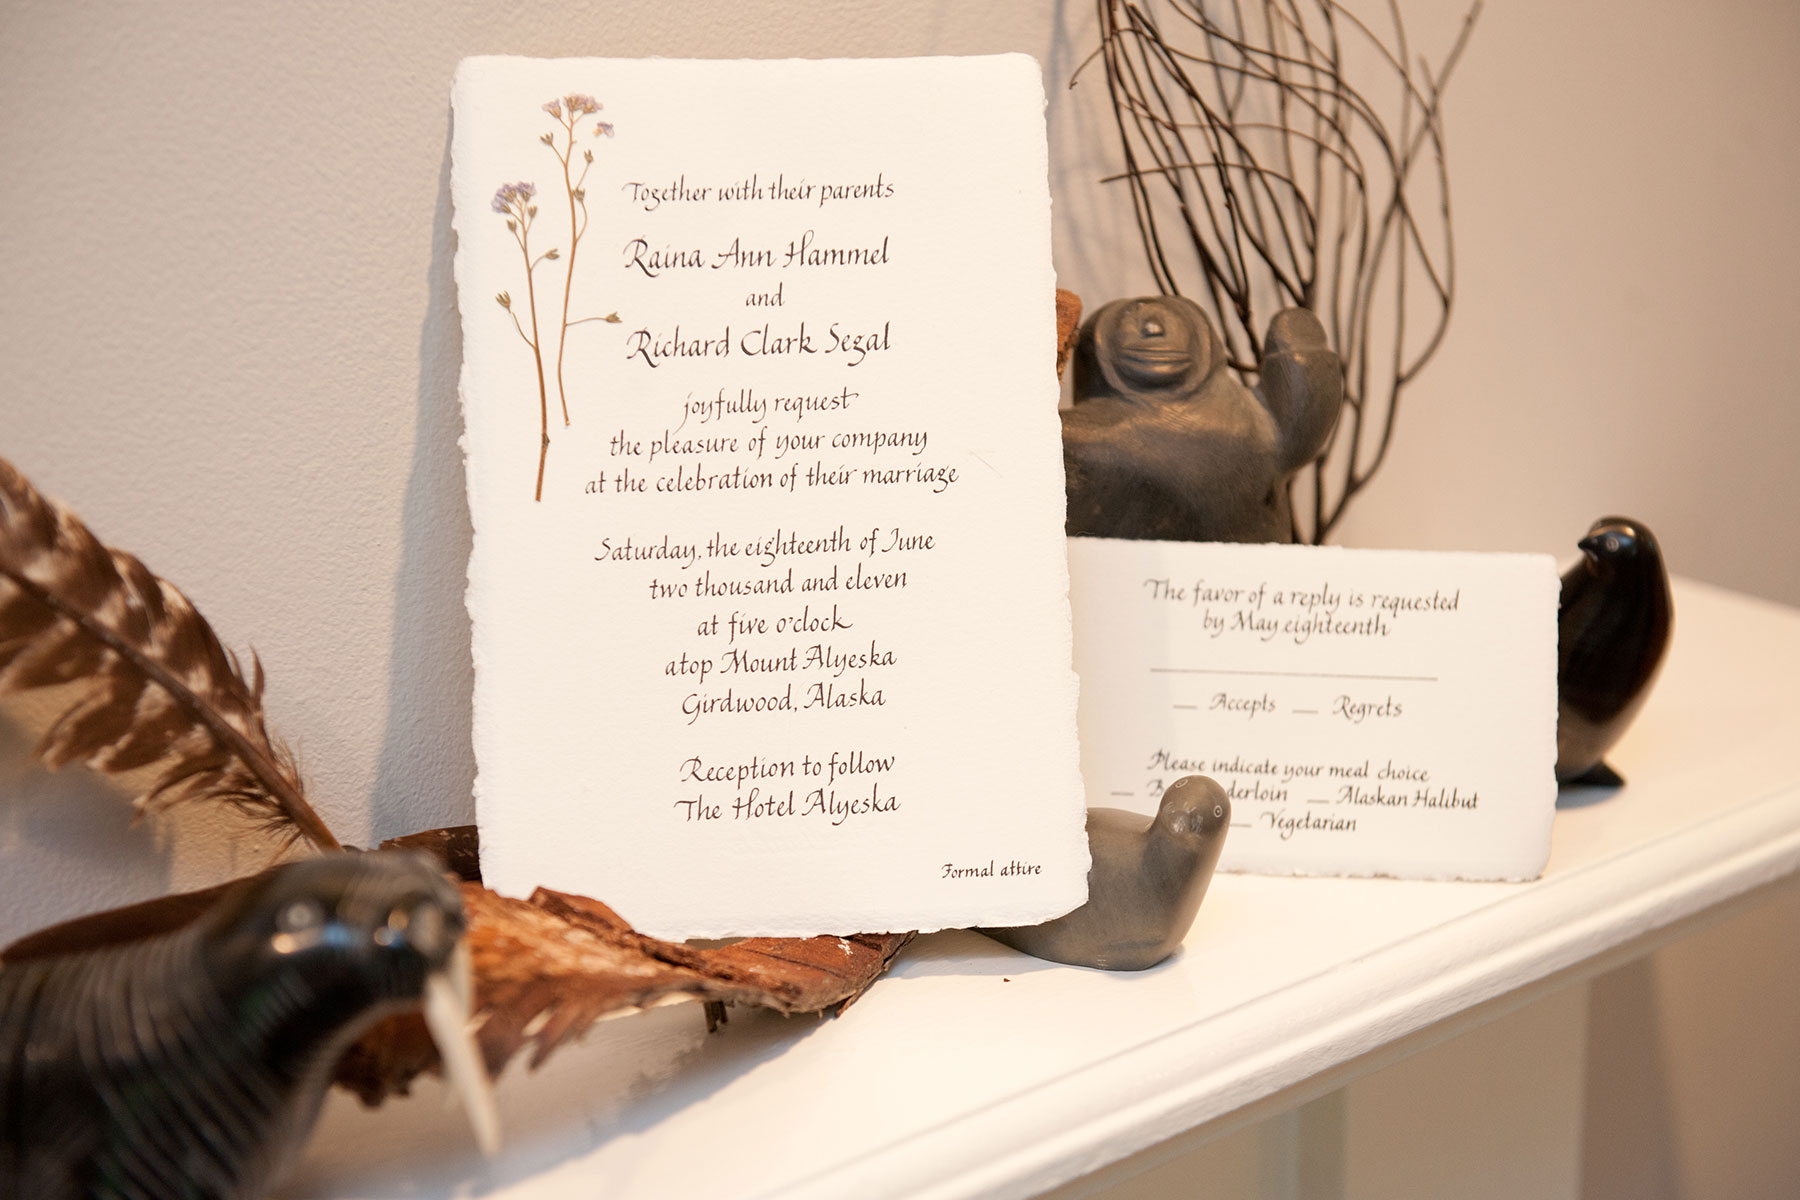 Together with their parents
Raina Ann Hammel
and
Richard Clark Segal
joyfully request
the pleasure of your company
at the celebration of their marriage
Saturday, the eighteenth of June
two thousand and eleven
at five o'clock
atop Mount Alyeska
Girdwood, Alaska
Reception to follow
The Hotel Alyeska
Formal attire
The favor of a reply is requested
by May eighteenth
Accepts Regrets
Please indicate your meal choice
Alaskan Halibut
Vegetarian